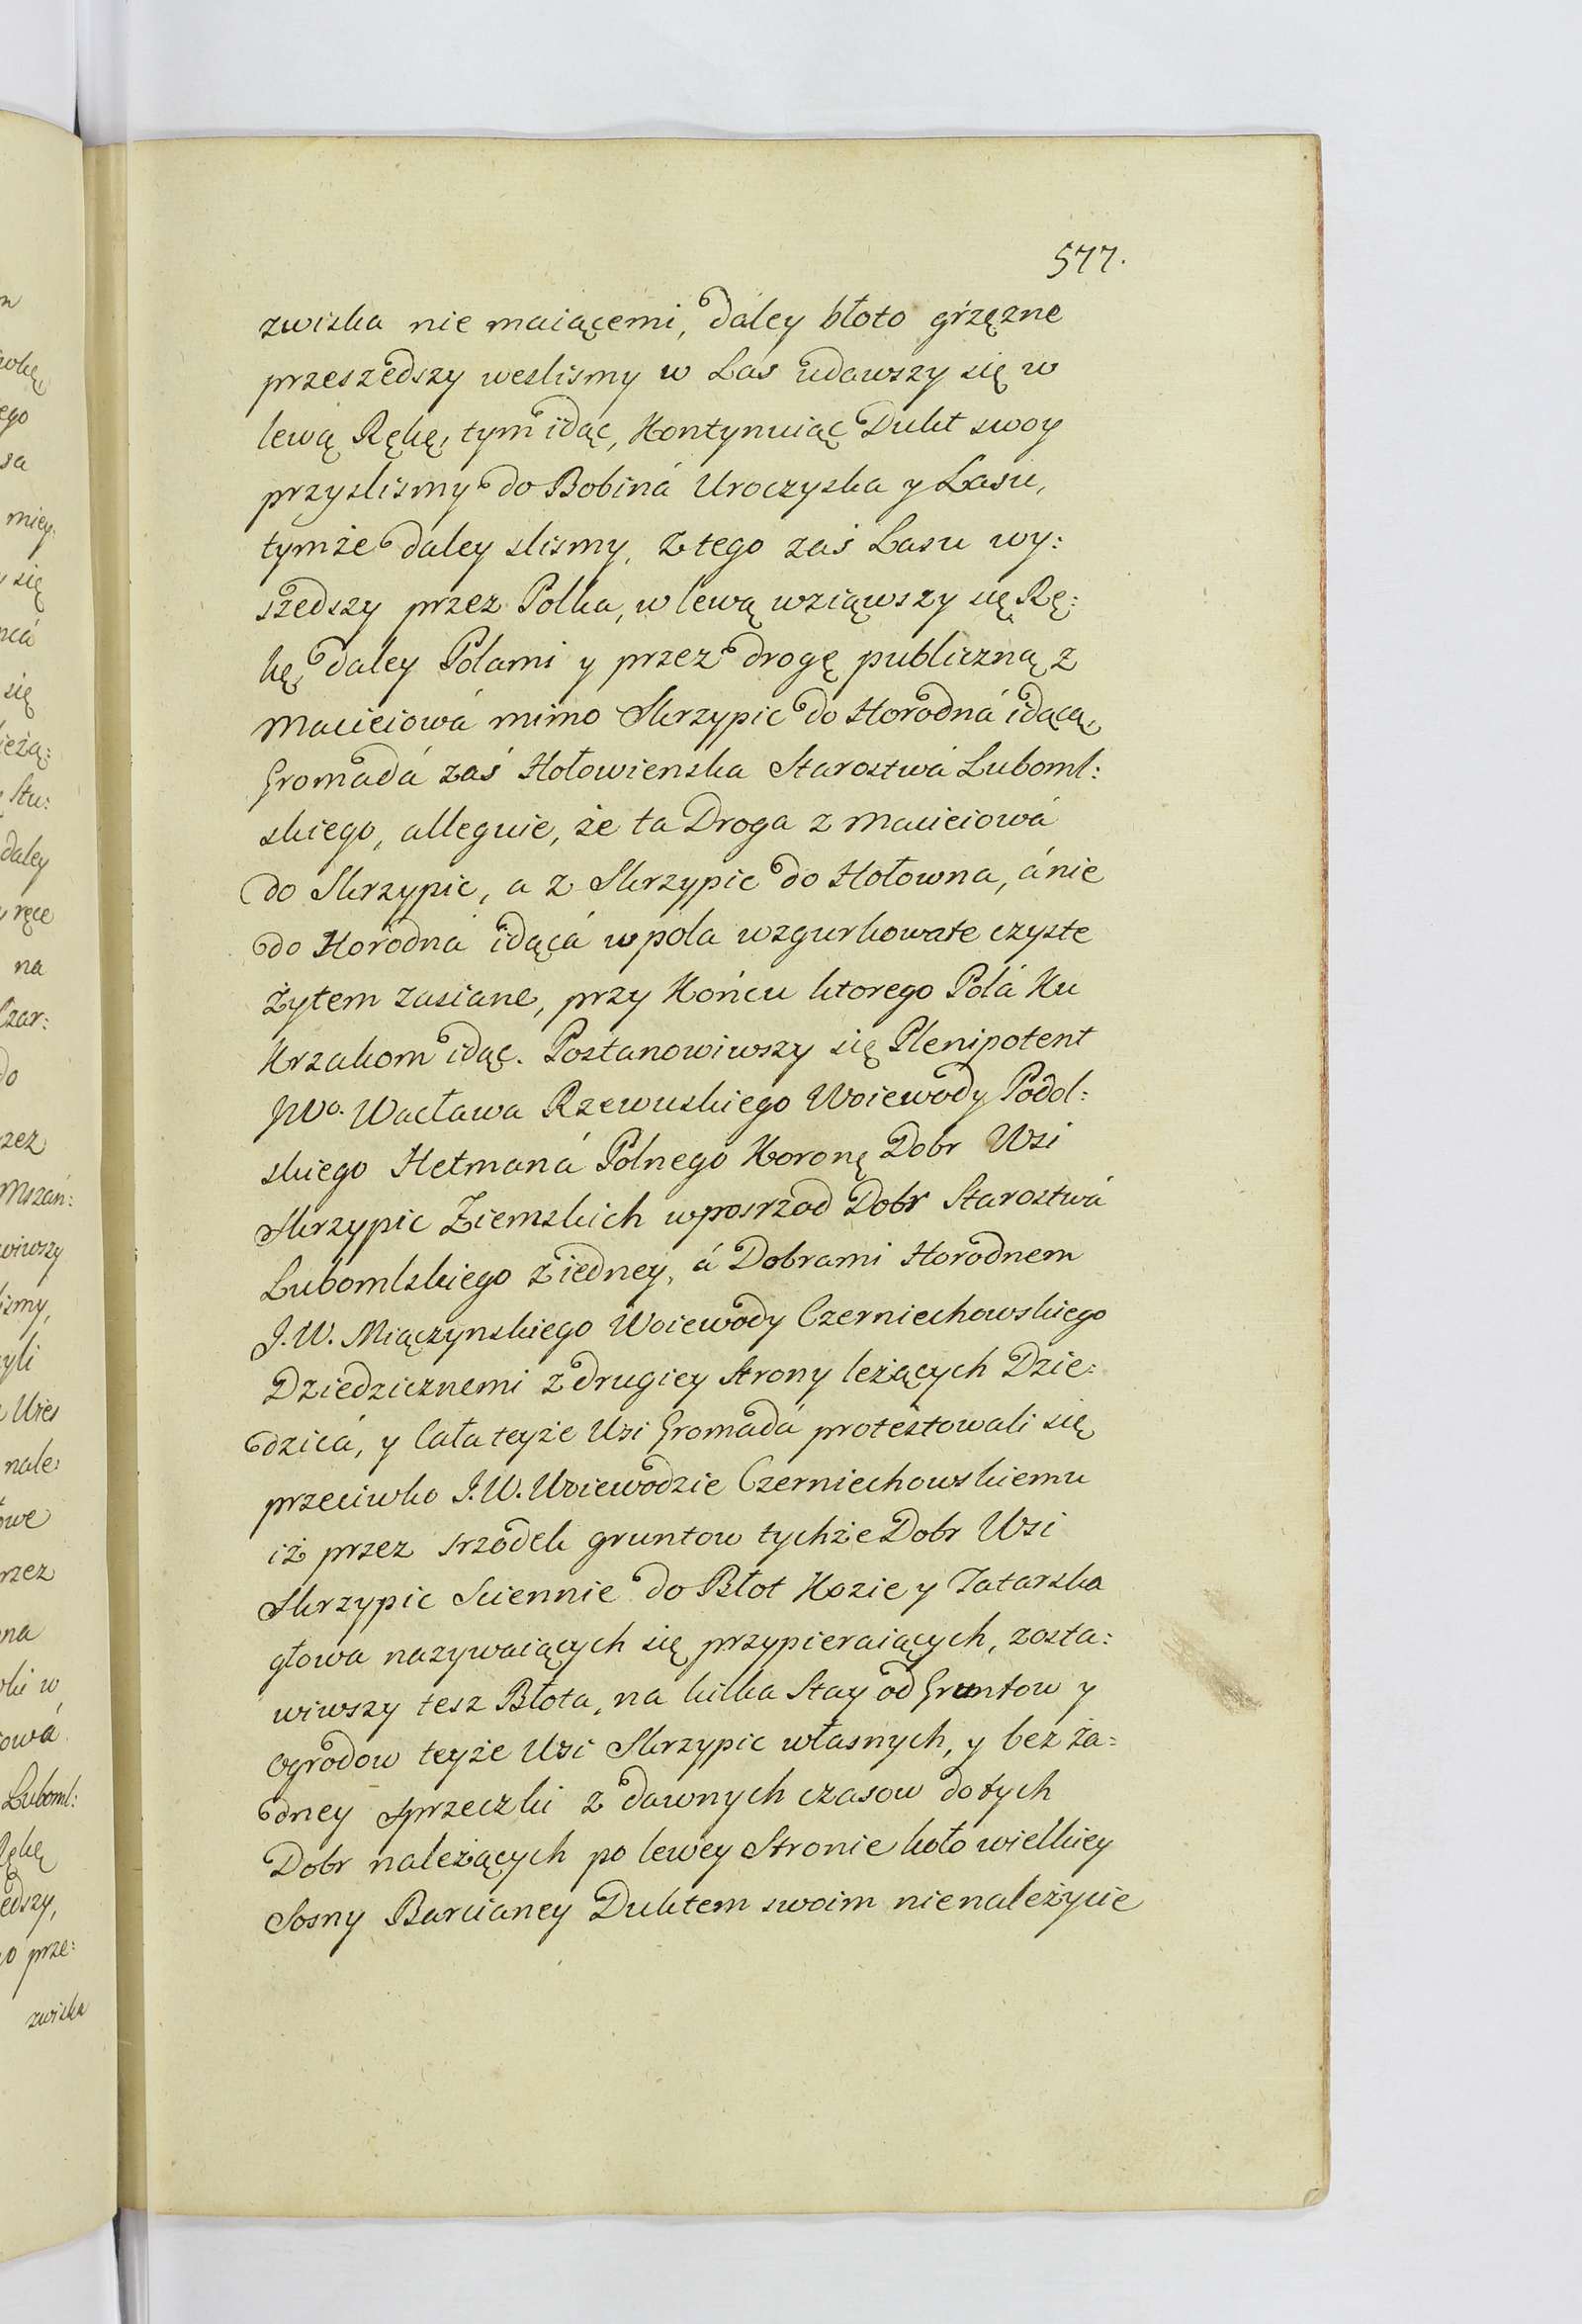 577.
zwiska nie maiącemi, daley błoto grzęzne
przeszedszy weslismy w Las udawszy się w
lewą Rękę, tym idąc, Kontynuiąc Dukt swoy
przyslismy do Bobiná Uroczyska y Lasu,
tymże daley slismy, z tego zaś Lasu wy:
szedszy przez Polka, w lewą wziąwszy się Rę:
kę, daley Polami y przez drogę publiczną z
Macieiowá mimo Skrzypic do Horodná idącą,
Gromadá zaś Hołowienska Starostwá Luboml:
skiego, alleguie, że ta Droga z Macieiowá
do Skrzypic, a z Skrzypic do Hołowna, á nie
do Horodná idącá w pola wzgurkowate czyste
Żytem zasiane, przy Końcu ktorego Polá Ku
Krzakom idąc. Postanowiwszy się Plenipotent
JWo. Wacława Rzewuskiego Woiewody Podol:
skiego Hetmaná Polnego Koronę Dobr Wsi
Skrzypic Ziemskich wposrzod Dobr Starostwá
Lubomlskiego z iedney, á Dobrami Horodnem
J.W. Miączynskiego Woiewody Czerniechowskiego
Dziedzicznemi z drugiey Strony leżących Dzie:
dzicá, y Cała teyże Wsi Gromadá protestowali się
przeciwko J.W. Woiewodzie Czerniechowskiemu
iż przez srzodek gruntow tychże Dobr Wsi
Skrzypic Sciennie do Błot Kozie y Tatarska
głowa nazywaiących się przypieraiących, zosta:
wiwszy tesz Błota, na kilka Stay od Gruntow y
Ogrodow teyże Wsi Skrzypic własnych, y bez ża:
dney sprzeczki z dawnych czasow do tych
Dobr należących po lewey Stronie koło wielkiey
Sosny Barcianey Duktem swoim nienależycie